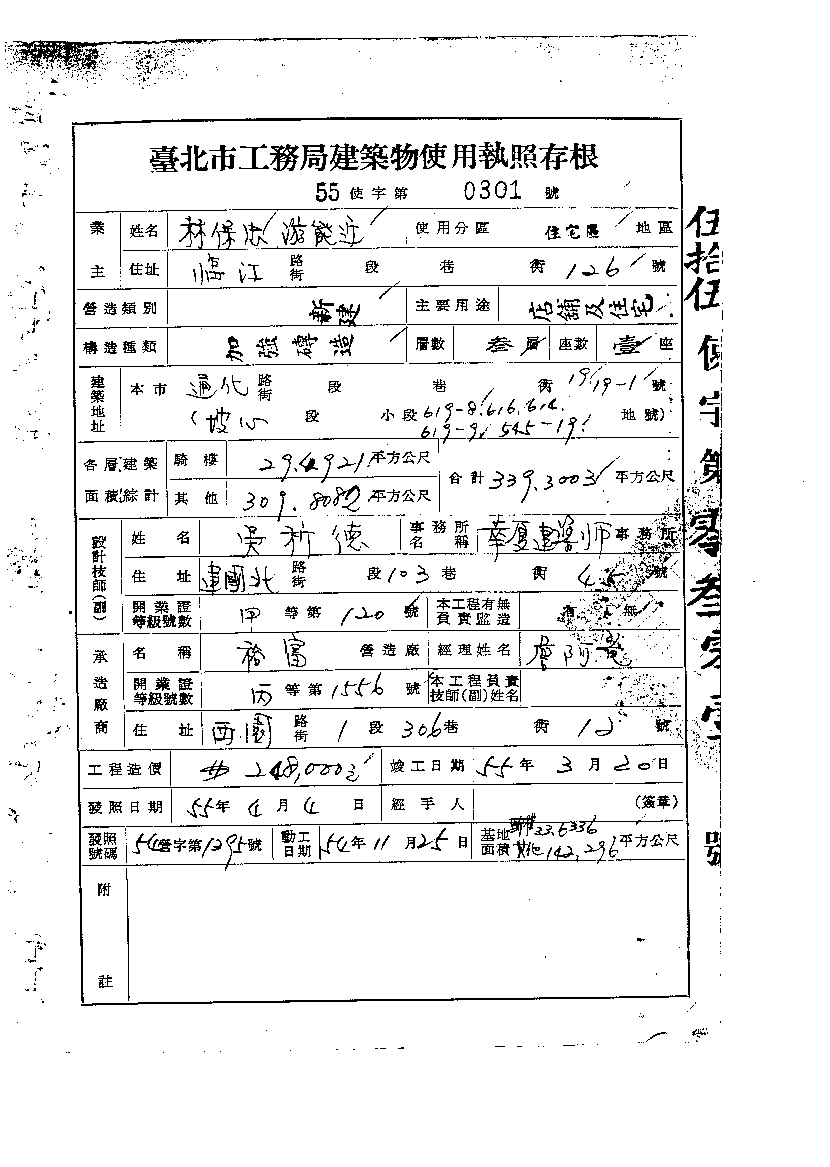 臺北市工務局建築物使用執照存根
55使字第 0301 號
業主 姓名 林保忠 游能近 使用分區 住宅區 地區
住址 臨江 路街 段 巷 衖 126 號
營造類別 新建 主要用途 店舖及住宅
構造種類 加強磚造 層數 叁層 座數 壹座
建築地址 本市 通化 路街 段 巷 衖 19 19-1 號
(坡心 段 小段 619-8. 616. 614. 地號)
619-9. 545-19
各層建築面積綜計 騎樓 29.4921 平方公尺 合計 339.3003 平方公尺
其他 309.8082 平方公尺
設計技師(副) 姓名 吳祈德 事務所名稱 華廈建築師 事務所
住址 建國北 路街 段 103 巷 衖 45 號
開業證等級號數 甲 等第 120 號 本工程有無負責監造 有 無
承造廠商 名稱 裕富 營造廠 經理姓名 詹阿
開業證等級號數 丙 等第 1556 號 本工程負責技師(副)姓名
住址 西園 路街 1 段 306 巷 衖 12 號
工程造價 248,000 竣工日期 55年 3月 20日
發照日期 55年 4月 4日 經手人 (簽章)
發照號碼 54營字第1295號 動工日期 54年 11月 25日 基地面積 33.5336 其他 142,296 平方公尺
附註
伍拾伍使字第零叁零壹號